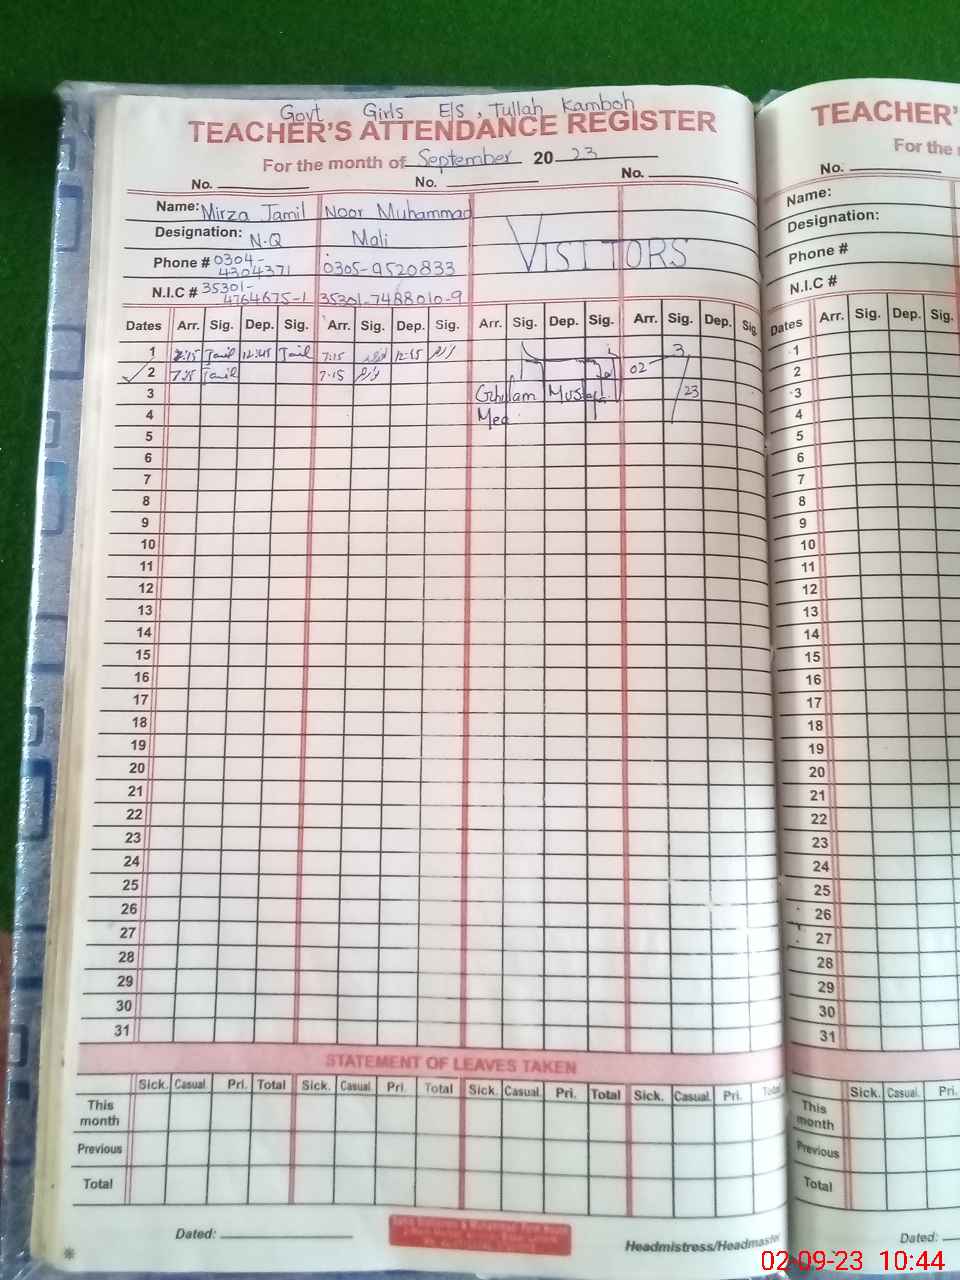 Govt Girls E/S, Tullah Kamboh
TEACHER'S ATTENDANCE REGISTER
For the month of September 2023
No. No. No.
Name: Mirza Jamil Noor Muhammad
VISITORS
Designation: N.Q Mali
Phone # 0304-4304371 0305-9520833
N.I.C # 35301-4764675-1 35301-7488010-9
Dates Arr. Sig. Dep. Sig. Arr. Sig. Dep. Sig. Arr. Sig. Dep. Sig. Arr. Sig. Dep. Sig.
1 Jamil 12:45 Jamil 7:15 12:15
2 7:15 Jamil 7:15 02 3
3 Ghulam 23
4 Mea
5
6
7
8
9
10
11
12
13
14
15
16
17
18
19
20
21
22
23
24
25
26
27
28
29
30
31
STATEMENT OF LEAVES TAKEN
Sick. Casual. Pri. Total Sick. Casual. Pri. Total Sick. Casual. Pri. Total Sick. Casual. Pri. Total
This month
Previous
Total
Dated:
Headmistress/Headmaster
TEACHER'S
For the
No.
Name:
Designation:
Phone #
N.I.C #
Dates Arr. Sig. Dep. Sig.
1
2
3
4
5
6
7
8
9
10
11
12
13
14
15
16
17
18
19
20
21
22
23
24
25
26
27
28
29
30
31
Sick. Casual. Pri.
This month
Previous
Total
Dated:
02-09-23 10:44